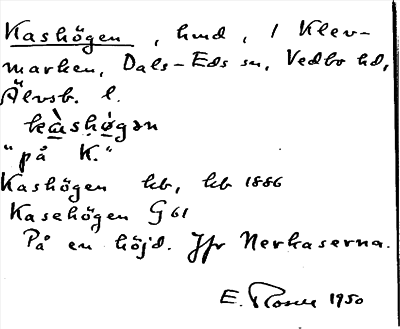 Kashögen, hmd, i Klev-
marken, Dals-Eds sn, Vedbo hd,
Älvsb. l.
kàshø̀gən
"på K."
Kashögen hb, hb 1886
Kasehögen G 61
På en höjd. Jfr Nerkaserna.
E. 1950